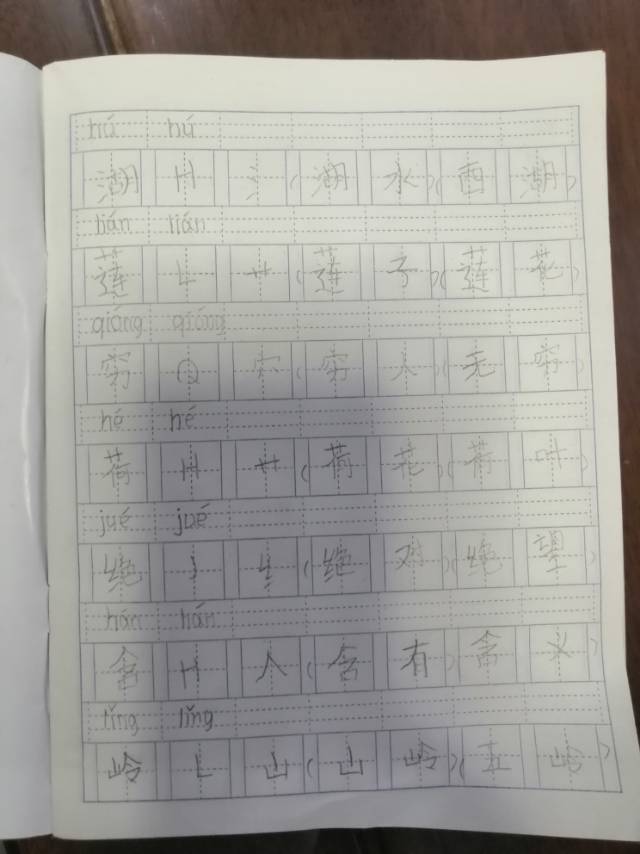 hú hú
湖 H 氵 (湖 水) (西 湖)
lián lián
莲 L 艹 (莲 子) (莲 花)
qióng qióng
穷 Q 穴 (穷 人) (无 穷)
hé hé
荷 H 艹 (荷 花) (荷 叶)
jué jué
绝 J 纟 (绝 对) (绝 望)
hán hán
含 H 人 (含 有) (含 义)
lǐng lǐng
岭 L 山 (山 岭) (五 岭)